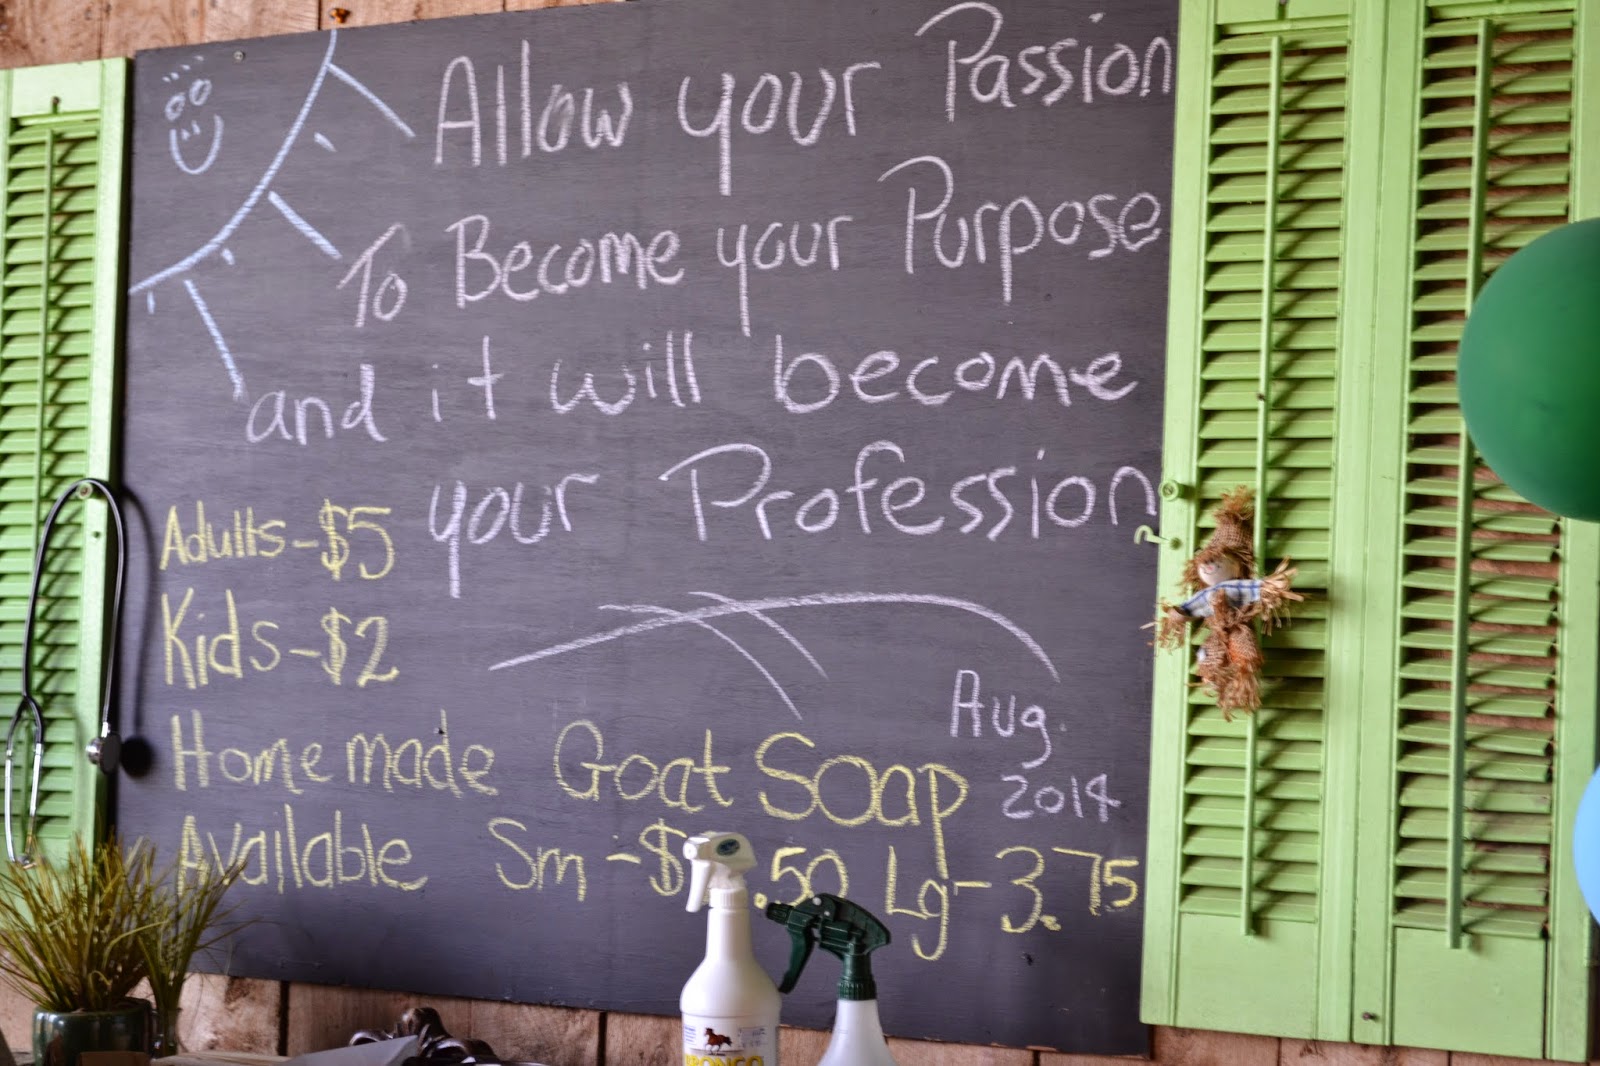 Allow your Passion
To Become your Purpose
and it will become
your Profession
Adults - $5
Kids - $2
Aug.
2014
Homemade Goat Soap
Available Sm - $ .50 Lg - 3.75